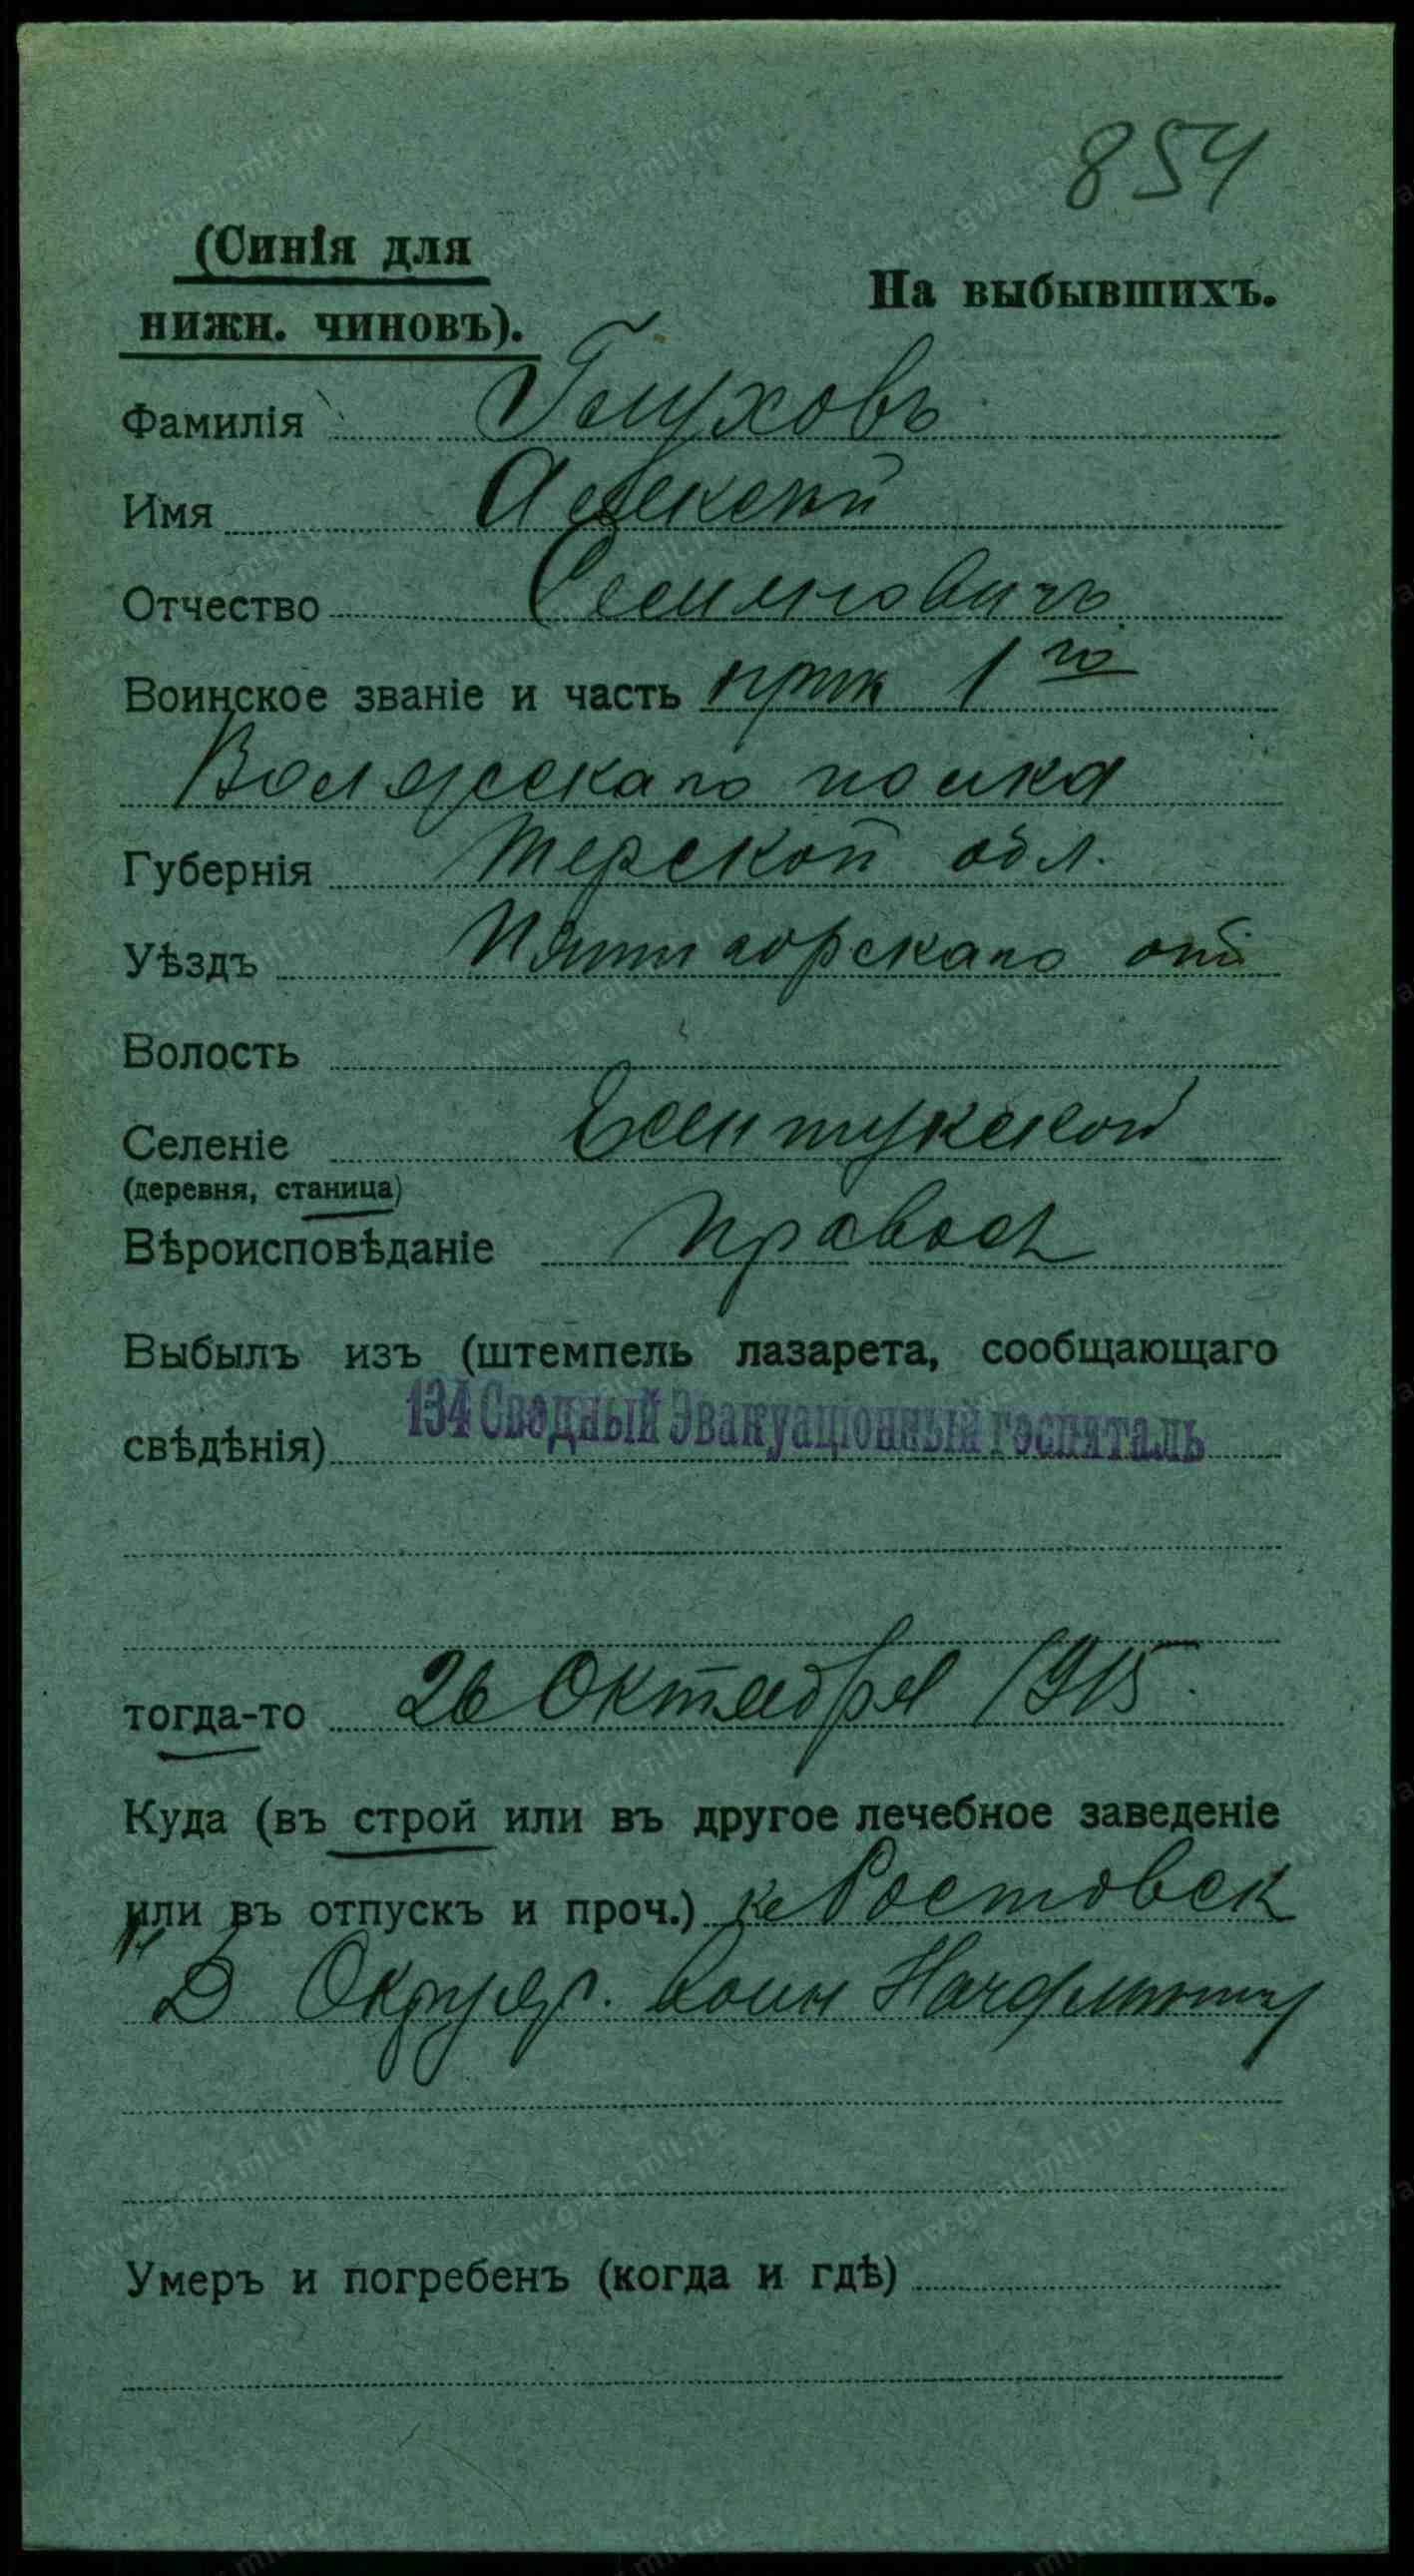 854
(Синія для
На выбывшихъ.
нижн. чиновъ).
Фамилія Глуховъ
Имя Алексѣй
Отчество Семеновичъ
Воинское званіе и часть 1го
Волжскаго полка
Губернія Терской обл.
Уѣздъ Пятигорскаго отд
Волость
Селеніе Есентукской
(деревня, станица)
Вѣроисповѣданіе правосл
Выбылъ изъ (штемпель лазарета, сообщающаго
134 Сводный Эвакуаціонный госпиталь
свѣдѣнія)
тогда-то 26 Октября 1915.
Куда (въ строй или въ другое лечебное заведеніе
или въ отпускъ и проч.) къ Ростовск
н/Д Окруж. воин Начальнику
Умеръ и погребенъ (когда и гдѣ)